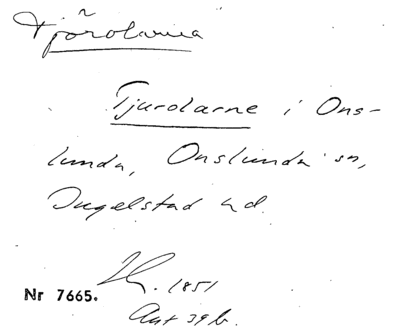 Tjörolarna
Tjurolarne i Ons-
lunda, Onslunda sn,
Ingelstad hd
1851
Nr 7665.
Ant 39 b.